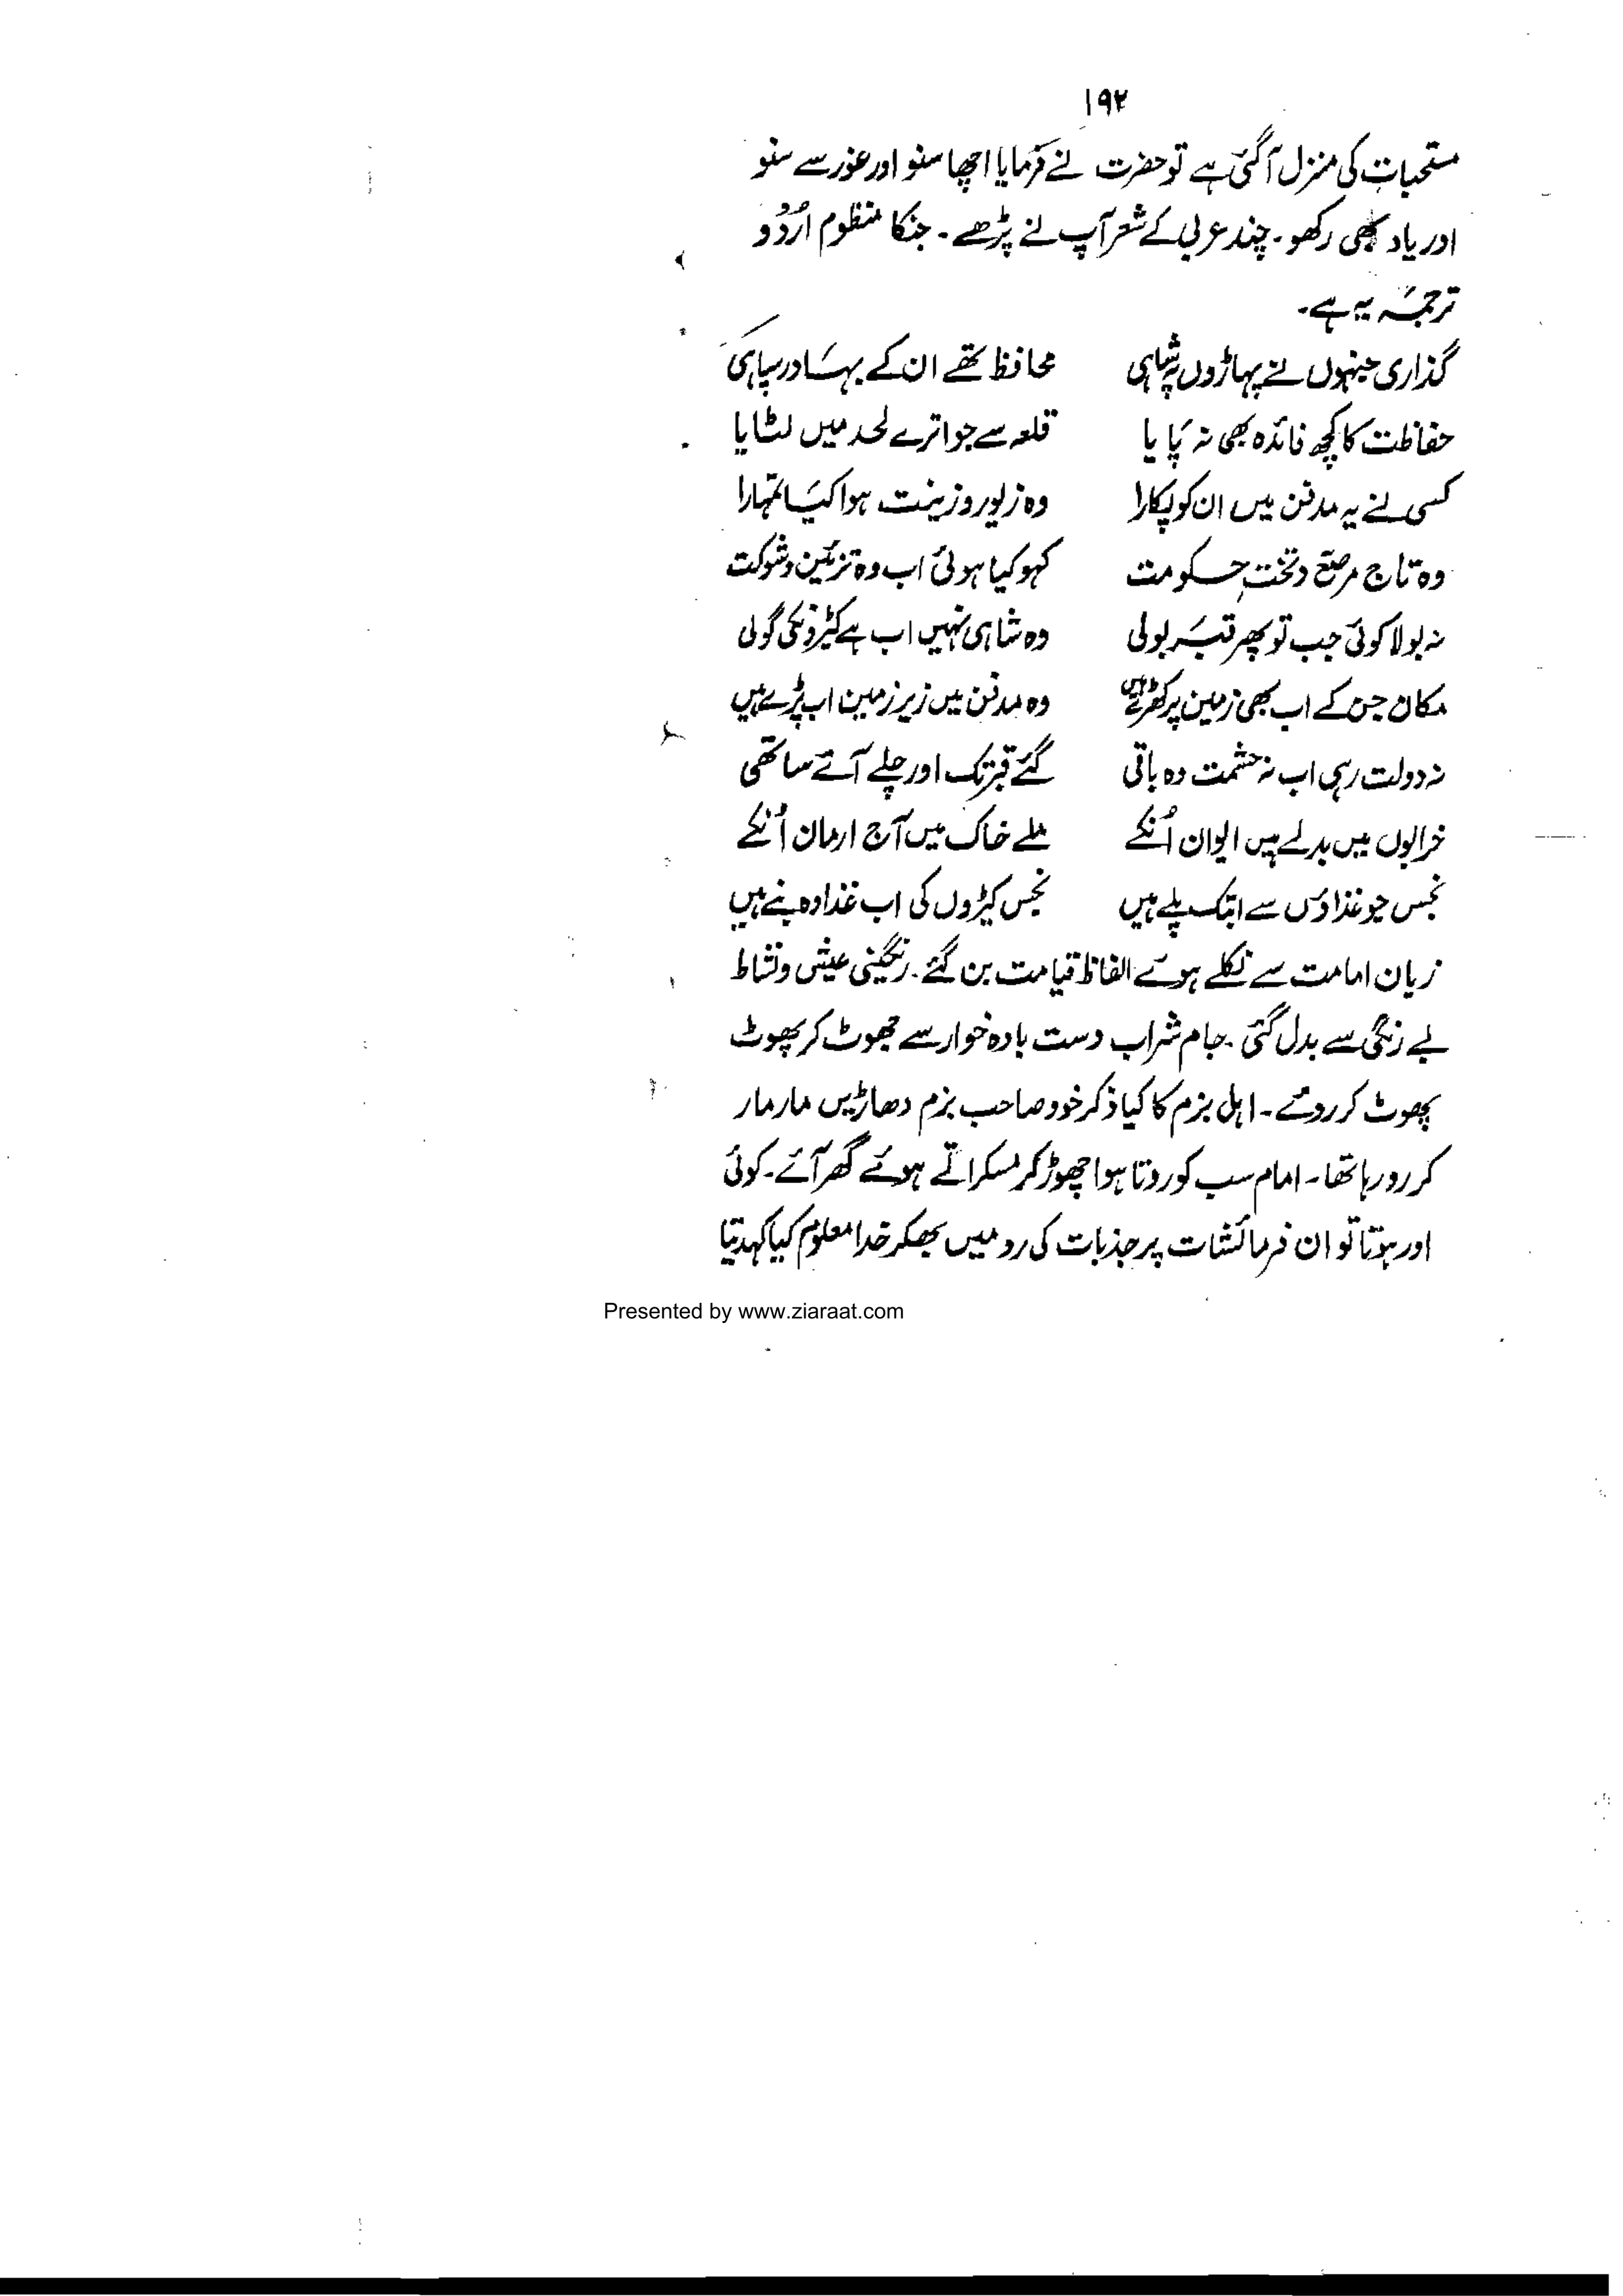 ۱۹۲
مستحبات کی منزل آگئی ہے تو حضرت نے فرمایا اچھا سنو اور غور سے سنو
اور یاد بھی رکھو۔ چند عربی کے شعر آپ نے پڑھے۔ جنکا منظوم اُردُو
ترجمہ یہ ہے۔
گذاری جنہوں نے پہاڑوں پہ شاہی محافظ تھے ان کے بہادر سپاہی
حفاظت کا کچھ فائدہ بھی نہ پایا قلعہ سے جو اترے لحد میں لٹایا
کسی نے یہ مدفن میں ان کو پکارا وہ زیور و زینت ہوا کیا تمہارا
وہ تاج مرصع و تختِ حکومت کہو کیا ہوئی اب وہ تزئین و شوکت
نہ بولا کوئی جب تو پھر قبر بولی وہ شاہی نہیں اب ہے کیڑونکی گولی
مکان جن کے اب بھی زمین پر کھڑے ہیں وہ مدفن میں زیر زمین اب پڑے ہیں
نہ دولت رہی اب نہ حشمت وہ باقی گئے قبر تک اور چلے آئے ساتھی
خرابوں میں بدلے ہیں ایوان اُنکے ملے خاک میں آج ارمان اُنکے
نجس جو غذاؤں سے ابتک پلے ہیں نجس کیڑوں کی اب غذا وہ بنے ہیں
زبان امامت سے نکلے ہوئے الفاظ قیامت بن گئے۔ رنگینی عیش و نشاط
بے رنگی سے بدل گئی۔ جام شراب دست بادہ خوار سے چھوٹ کر پھوٹ
پھوٹ کر روئے۔ اہل بزم کا کیا ذکر خود صاحب بزم دھاڑیں مار مار
کر رو رہا تھا۔ امام سب کو روتا ہوا چھوڑ کر مسکراتے ہوئے گھر آئے۔ کوئی
اور ہوتا تو ان فرمائشات پر جذبات کی رو میں بھکر خدا معلوم کیا کہدیتا
Presented by www.ziaraat.com